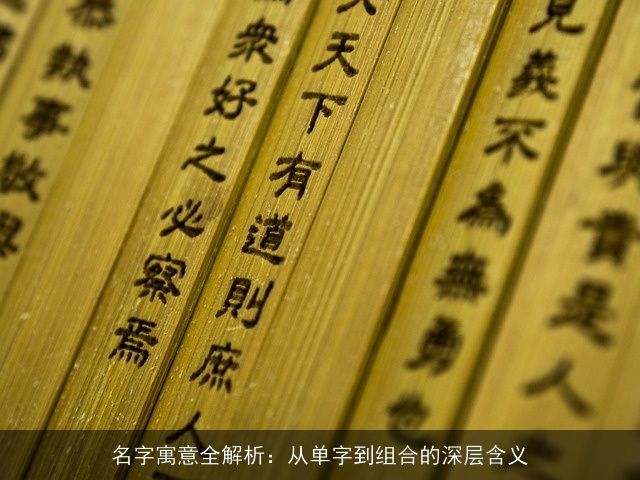 見義不為無勇也
天下有道則庶人
衆好之必察焉
恭執事敬與
與貴是人之
名字寓意全解析：从单字到组合的深层含义